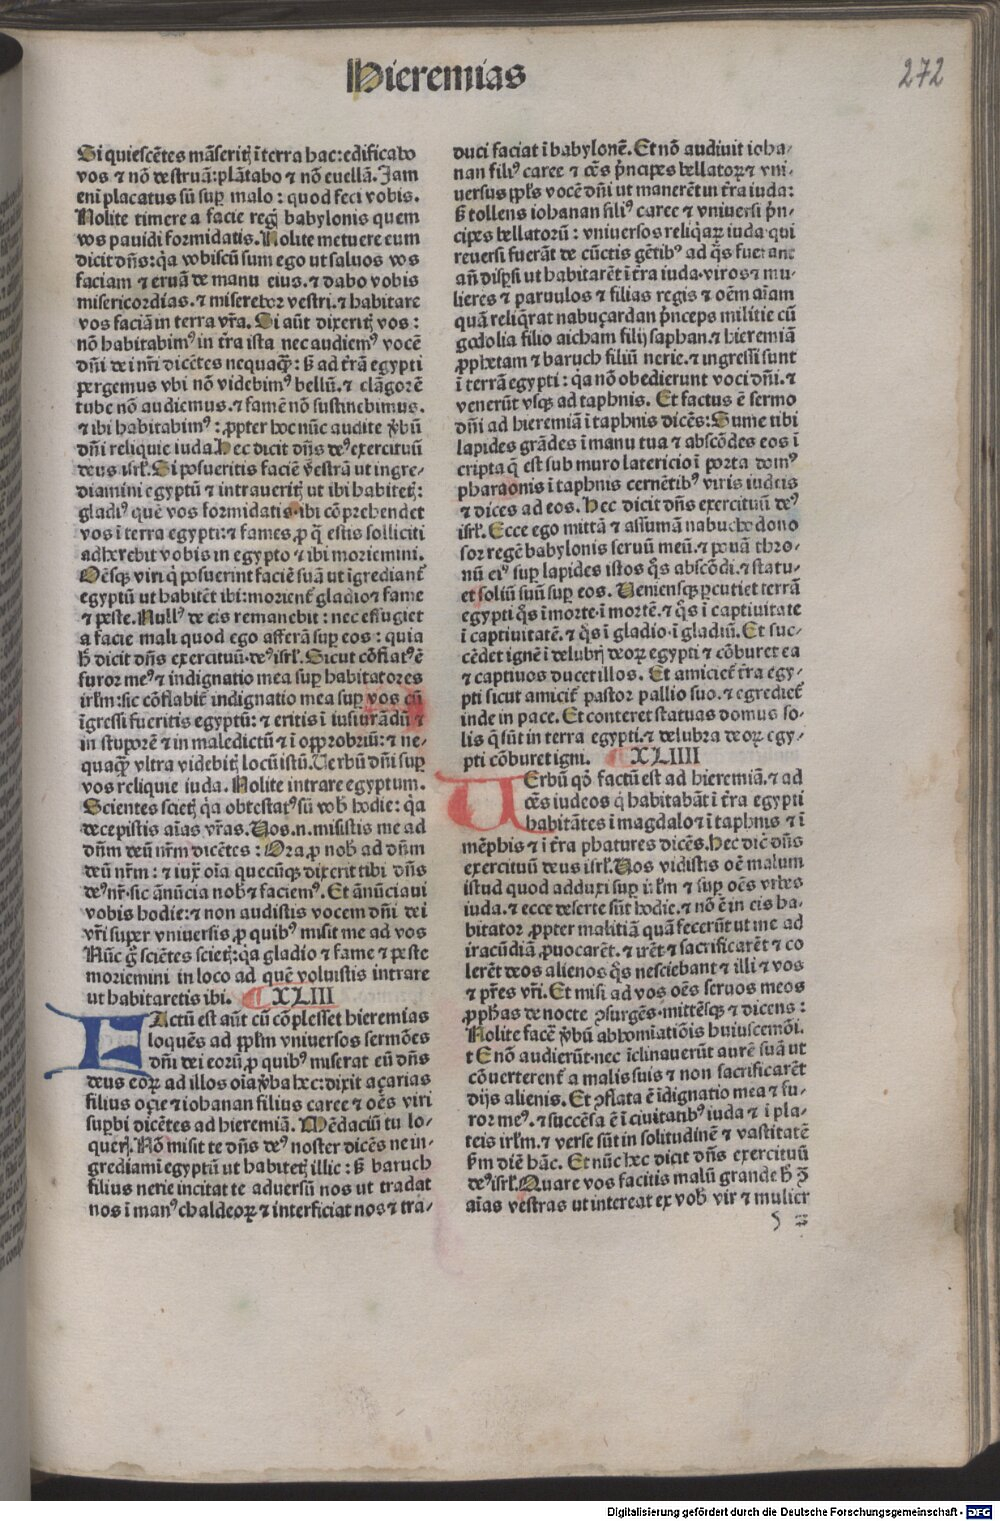 Hieremias
272
Si quiescẽtes mãseritꝭ ĩ terra hac: edificabo
vos ⁊ nõ destruã: plãtabo ⁊ nõ evellã. Jam
eni placatus sũ suꝑ malo : quod feci vobis.
Nolite timere a facie regꝭ babylonis quem
vos pavidi formidatis. Nolite metuere eum
dicit dñs: q̃a vobiscũ sum ego ut saluos vos
faciam ⁊ eruã de manu eius. ⁊ dabo vobis
misericordias. ⁊ miserebor vestri. ⁊ habitare
vos faciã in terra vr̃a. Si aũt dixeritꝭ vos :
nõ habitabimꝰ in t̃ra ista nec audiemꝰ vocẽ
dñi dei nr̃i dicẽtes nequaq̃ꝫ: s̃ ad t̃rã egypti
pergemus vbi nõ videbimꝰ bellũ. ⁊ clãgorẽ
tube nõ audiemus. ⁊ famẽ nõ sustinebimus.
⁊ ibi habitabimꝰ : ꝓpter hoc nũc audite ṽbũ
dñi reliquie iuda. Hec dicit dñs deꝰ exercituũ
deus isrl̃. Si posueritis faciẽ vestrã ut ingre-
diamini egyptũ ⁊ intraueritꝭ ut ibi habitetꝭ:
gladiꝰ quẽ vos formidatis. ibi cõprehendet
vos ĩ terra egypti: ⁊ fames ꝓ q̃ estis solliciti
adherebit vobis in egypto ⁊ ibi moriemini.
Oẽsqꝫ viri q̃ posuerint faciẽ suã ut ĩgrediant̃
egyptũ ut habitẽt ibi: morient̃ gladio ⁊ fame
⁊ peste. Nullꝰ de eis remanebit : nec effugiet
a facie mali quod ego afferã suꝑ eos : quia
h̃ dicit dñs exercituũ. deꝰ isrl̃. Sicut cõflatꝰ ẽ
furor meꝰ ⁊ indignatio mea suꝑ habitatores
irl̃m: sic cõflabit̃ indignatio mea suꝑ vos cũ
ĩgressi fueritis egyptũ: ⁊ eritis ĩ iusiurãdũ ⁊
in stuporẽ ⁊ in maledictũ ⁊ ĩ opprobriũ: ⁊ ne-
quaq̃ꝫ vltra videbitꝭ locũ istũ. Verbũ dñi suꝑ
vos reliquie iuda. Nolite intrare egyptum.
Scientes scietꝭ q̃a obtestatꝰ sũ vob̃ hodie: q̃a
decepistis aĩas vr̃as. Vos. n. misistis me ad
dñm deũ nr̃m dicẽtes : Ora ꝓ nob̃ ad dñm
deũ nr̃m: ⁊ iuxͣ oĩa quecũqꝫ dixerit tibi dñs
deꝰ nr̃. sic ãnũcia nob̃ ⁊ faciemꝰ. Et ãnũciaui
vobis hodie: ⁊ non audistis vocem dñi dei
vr̃i super vniversis ꝓ quibꝰ misit me ad vos
Nũc g̃ sciẽtes scietꝭ: q̃a gladio ⁊ fame ⁊ peste
moriemini in loco ad quẽ voluistis intrare
ut habitaretis ibi. ¶ XLIII
FActũ est aũt cũ cõplesset hieremias
loquẽs ad ppl̃m vniuersos sermões
dñi dei eorũ ꝓ quibꝰ miserat eũ dñs
deus eoꝝ ad illos oĩa ṽba hec: dixit açarias
filius oçie ⁊ iohanan filius caree ⁊ oẽs viri
suꝑbi dicẽtes ad hieremiã. Mẽdaciũ tu lo-
querꝭ. Nõ misit te dñs deꝰ noster dicẽs ne in-
grediamĩ egyptũ ut habitetꝭ illic : s̃ baruch
filius nerie incitat te adversũ nos ut tradat
nos ĩ manꝰ chaldeoꝝ ⁊ interficiat nos ⁊ trã-
duci faciat ĩ babylonẽ. Et nõ audivit ioha-
nan filiꝰ caree ⁊ oẽs p̃ncipes bellatoꝝ ⁊ vni-
versus ppl̃s vocẽ dñi ut manerẽt in t̃ra iuda:
s̃ tollens iohanan filiꝰ caree ⁊ vniuersi p̃n-
cipes bellatorũ : vniuersos reliq̃aꝝ iuda qui
reuersi fuerãt de cũctis gẽtibꝰ ad q̃s fuerant
añ disp̃si ut habitarẽt ĩ t̃ra iuda. viros ⁊ mu-
lieres ⁊ paruulos ⁊ filias regis ⁊ oẽm aĩam
quã reliq̃rat nabuçardan p̃nceps militie cũ
godolia filio aicham filij saphan. ⁊ hieremiã
ꝓphetam ⁊ baruch filiũ nerie. ⁊ ingressi sunt
ĩ terrã egypti : q̃a nõ obedierunt voci dñi. ⁊
venerũt vsqꝫ ad taphnis. Et factus ẽ sermo
dñi ad hieremiã ĩ taphnis dicẽs: Sume tibi
lapides grãdes ĩ manu tua ⁊ abscõdes eos ĩ
cripta q̃ est sub muro latericio ĩ porta domꝰ
pharaonis ĩ taphnis cernẽtibꝰ viris iudeis
⁊ dices ad eos. Hec dicit dñs exercituũ deꝰ
isrl̃. Ecce ego mittã ⁊ assumã nabuchodono
sor regẽ babylonis seruũ meũ. ⁊ ponã thro-
nũ eiꝰ suꝑ lapides istos q̃s abscõdi. ⁊ statu-
et soliũ suũ suꝑ eos. Veniensqꝫ ꝑcutiet terrã
egypti q̃s ĩ morte. ĩ mortẽ. ⁊ q̃s ĩ captivitate
ĩ captiuitatẽ. ⁊ q̃s ĩ gladio. ĩ gladiũ. Et suc-
cẽdet ignẽ ĩ delubrꝭ deoꝝ egypti ⁊ cõburet ea
⁊ captiuos ducet illos. Et amiciet̃ t̃ra egy-
pti sicut amicit̃ pastor pallio suo. ⁊ egrediet̃
inde in pace. Et conteret statuas domus so-
lis q̃ sũt in terra egypti. ⁊ delubra deoꝝ egy-
pti cõburet igni. ¶ XLIIII
VErbũ qõ factũ est ad hieremiã. ⁊ ad
oẽs iudeos q̃ habitabãt ĩ t̃ra egypti
habitãtes ĩ magdalo ⁊ ĩ taphnis ⁊ ĩ
mẽphis ⁊ ĩ t̃ra phatures dicẽs. Hec dic̃ dñs
exercituũ deus isrl̃. Vos vidistis oẽ malum
istud quod adduxi suꝑ irl̃m ⁊ suꝑ oẽs vrbes
iuda. ⁊ ecce deserte sũt hodie. ⁊ nõ ẽ in eis ha-
bitator ꝓpter malitiã quã fecerũt ut me ad
iracũdiã ꝓuocarẽt. ⁊ irẽt ⁊ sacrificarẽt ⁊ co
lerẽt deos alienos q̃s nesciebant ⁊ illi ⁊ vos
⁊ pr̃es vr̃i. Et misi ad vos oẽs seruos meos
ꝓphãs de nocte ꝯsurgẽs. mittẽsqꝫ ⁊ dicens :
Nolite facẽ ṽbũ abhomiatiõis huiuscemõi.
⁊ E nõ audierũt. nec ĩclinauerũt aurẽ suã ut
cõuerterent̃ a malis suis ⁊ non sacrificarẽt
dijs alienis. Et ꝯflata ẽ ĩdignatio mea ⁊ fu-
ror meꝰ. ⁊ succẽsa ẽ ĩ ciuitatibꝰ iuda ⁊ ĩ pla-
teis irl̃m. ⁊ verse sũt in solitudinẽ ⁊ vastitatẽ
s̃m diẽ hãc. Et nũc hec dicit dñs exercituũ
deꝰ isrl̃. Quare vos facitis malũ grande h̃ ꝯ̃
aĩas vestras ut intereat ex vob̃ vir ⁊ mulier
Digitalisierung gefördert durch die Deutsche Forschungsgemeinschaft - DFG